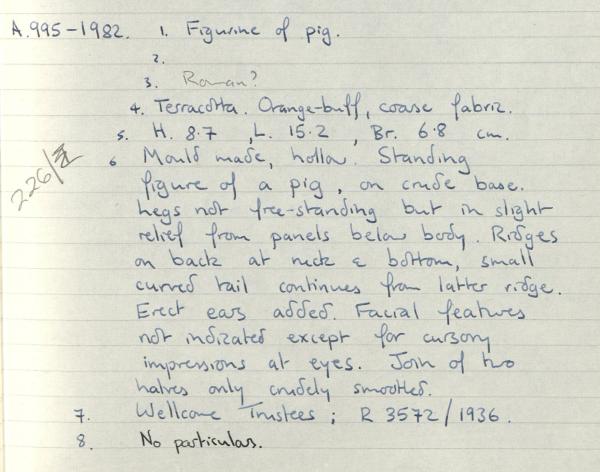 A.995-1982. 1. Figurine of pig.
2.
3. Roman?
4. Terracotta. Orange-buff, coarse fabric.
5. H. 8.7, L. 15.2, Br. 6.8 cm.
6 Mould made, hollow. Standing
figure of a pig, on crude base.
Legs not free-standing but in slight
relief from panels below body. Ridges
on back at neck & bottom, small
curved tail continues from latter ridge.
Erect ears added. Facial features
not indicated except for cursory
impressions at eyes. Join of two
halves only crudely smoothed.
7. Wellcome Trustees; R 3572/1936.
8. No particulars.
226/